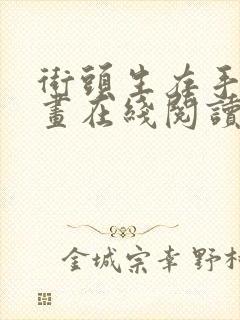 街頭生存手
畫在綫閱讀
金城宗幸 野村